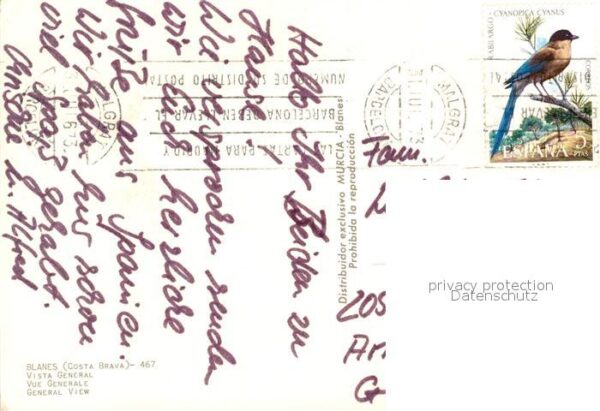 Hallo Ihr Beiden zu
Hause!
Wie versprochen senden
wir Euch herzliche
Grüße aus Spanien.
Wir haben hier schon
viel Spaß gehabt.
u. Alfred
BLANES (COSTA BRAVA)- 467
VISTA GENERAL
VUE GENERALE
GENERAL VIEW
Distribuidor exclusivo MURCIA - Blanes
Prohibida la reproducción
LAS CARTAS PARA MADRID Y
BARCELONA DEBEN LLEVAR EL
NUMERO DE SU DISTRITO POSTAL
MALGRAT
BARCELONA
RABILARGO - CYANOPICA CYANUS
ESPAÑA 5 PTAS
Fam.
privacy protection
Datenschutz